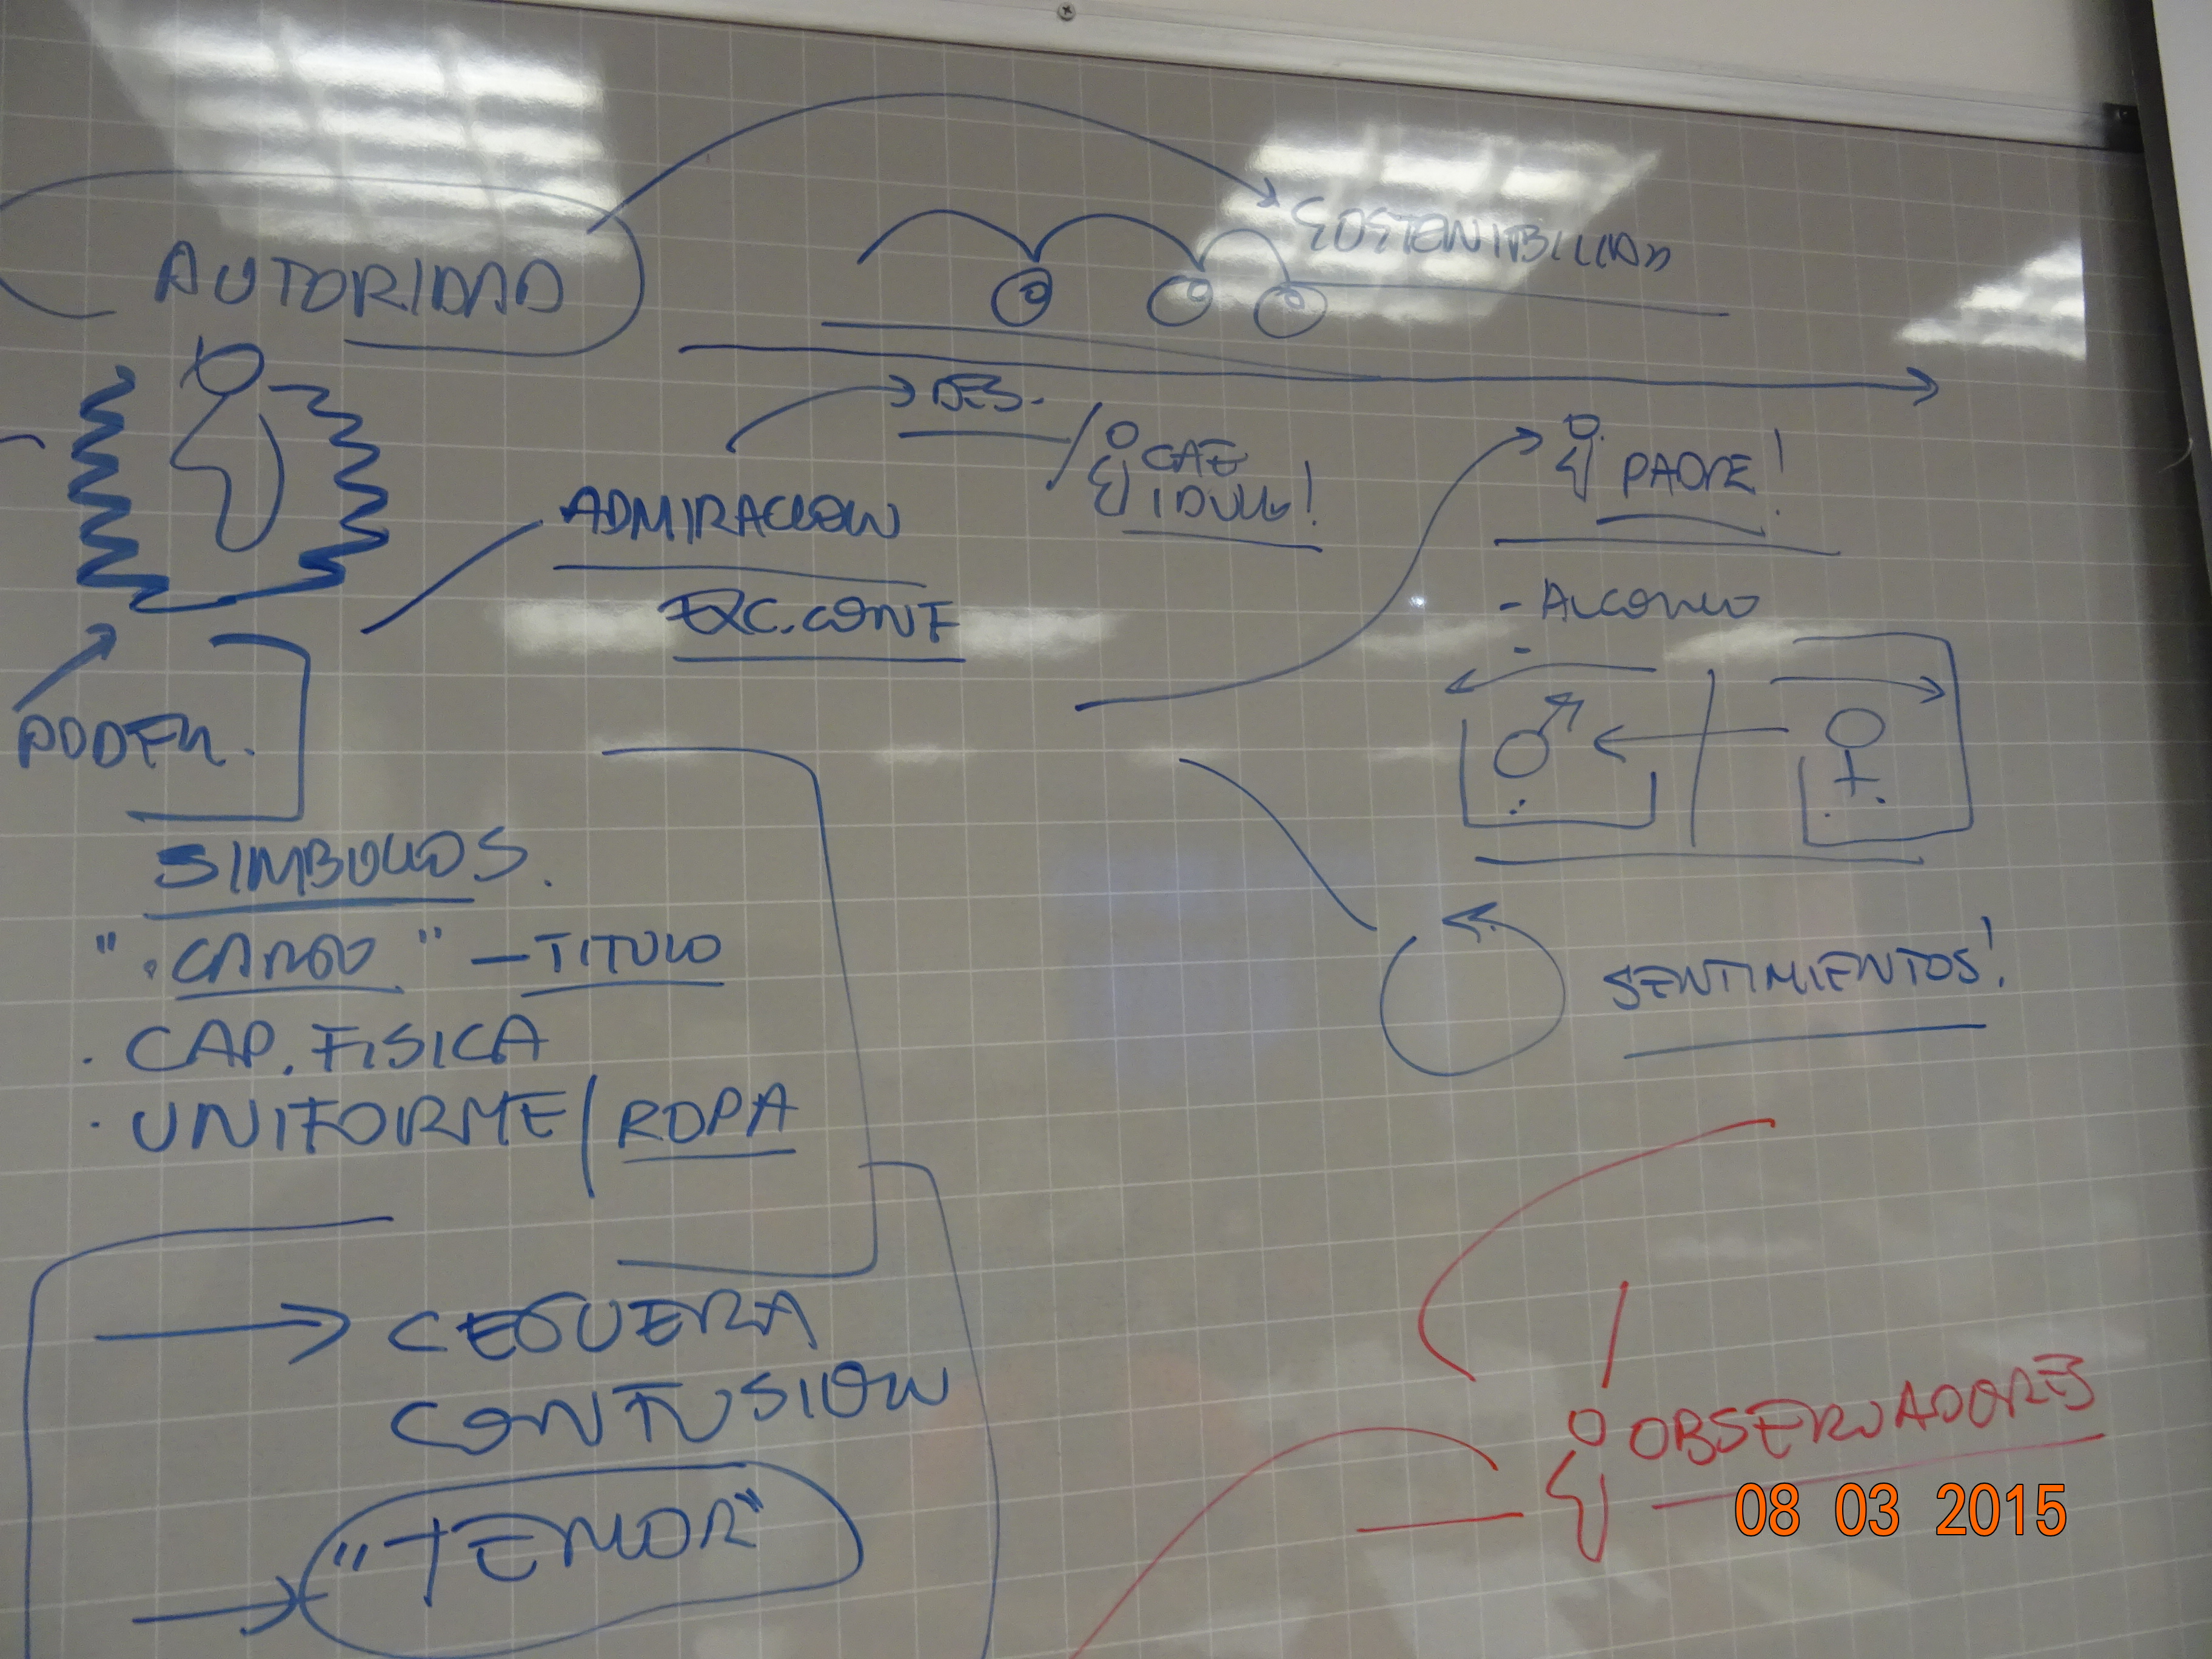 AUTORIDAD
SOSTENIBILIDAD
DES.
CAE
IDOLO!
PADRE!
ADMIRACION
EXC. CONF
- ALCOHOLO
-
PODER.
SIMBOLOS.
". CARGO" - TITULO
. CAP. FISICA
. UNIFORME / ROPA
SENTIMIENTOS!
CEGUERA
CONFUSION
"TEMOR"
OBSERVADORES
08 03 2015